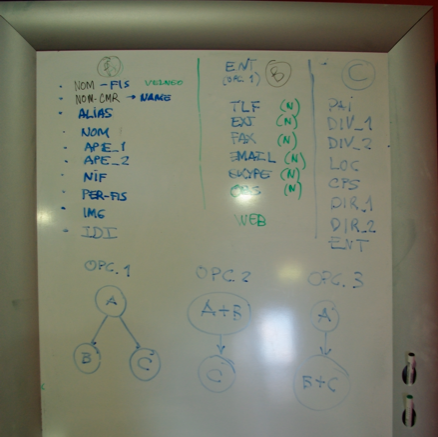 NOM-FIS
NOM-CMR → NAME
ALIAS
NOM
APE_1
APE_2
NIF
PER-FIS
IMG
IDI
ENT B
(OPC 1)
TLF (N)
EXT (N)
FAX (N)
EMAIL (N)
SKYPE (N)
OBS (N)
WEB
C
PAI
DIV_1
DIV_2
LOC
CPS
DIR_1
DIR_2
ENT
OPC. 1
A
B C
OPC 2
A+B
C
OPC. 3
A
B+C